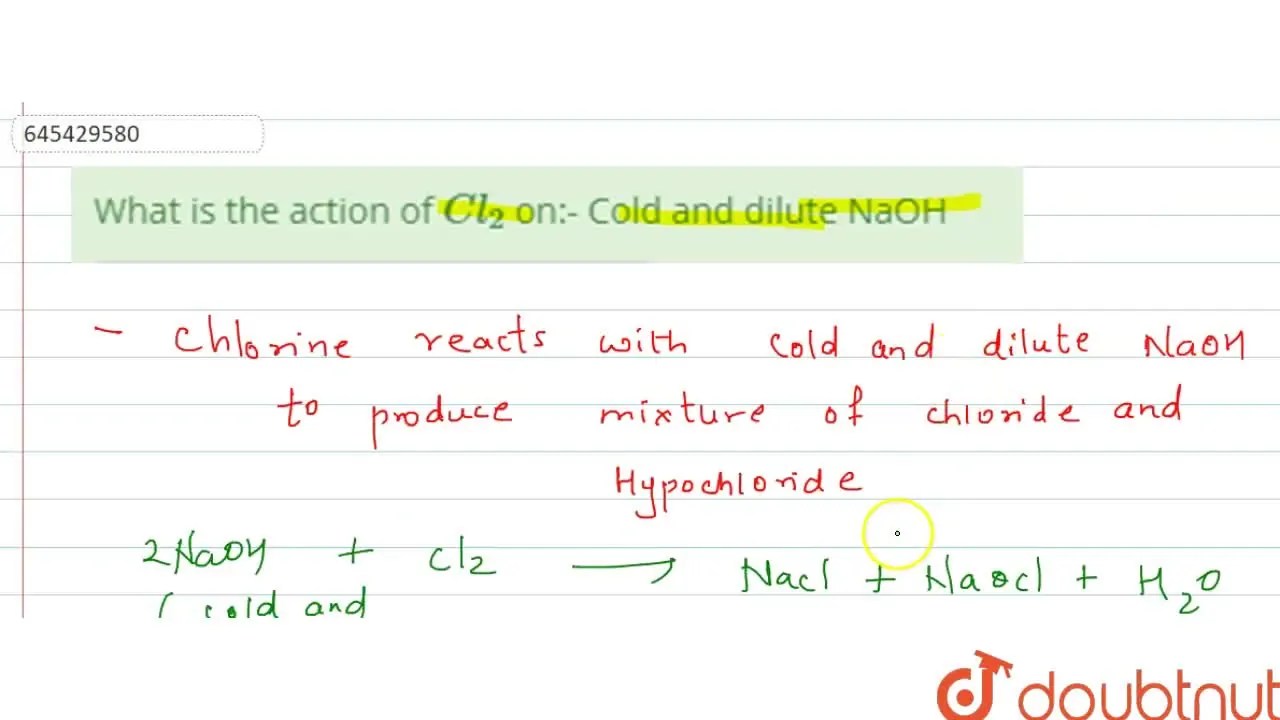 645429580
What is the action of Cl₂ on:- Cold and dilute NaOH
- Chlorine reacts with cold and dilute NaOH
to produce mixture of chloride and
Hypochloride
2NaOH + Cl₂ → NaCl + NaOCl + H₂O
( cold and
doubtnut